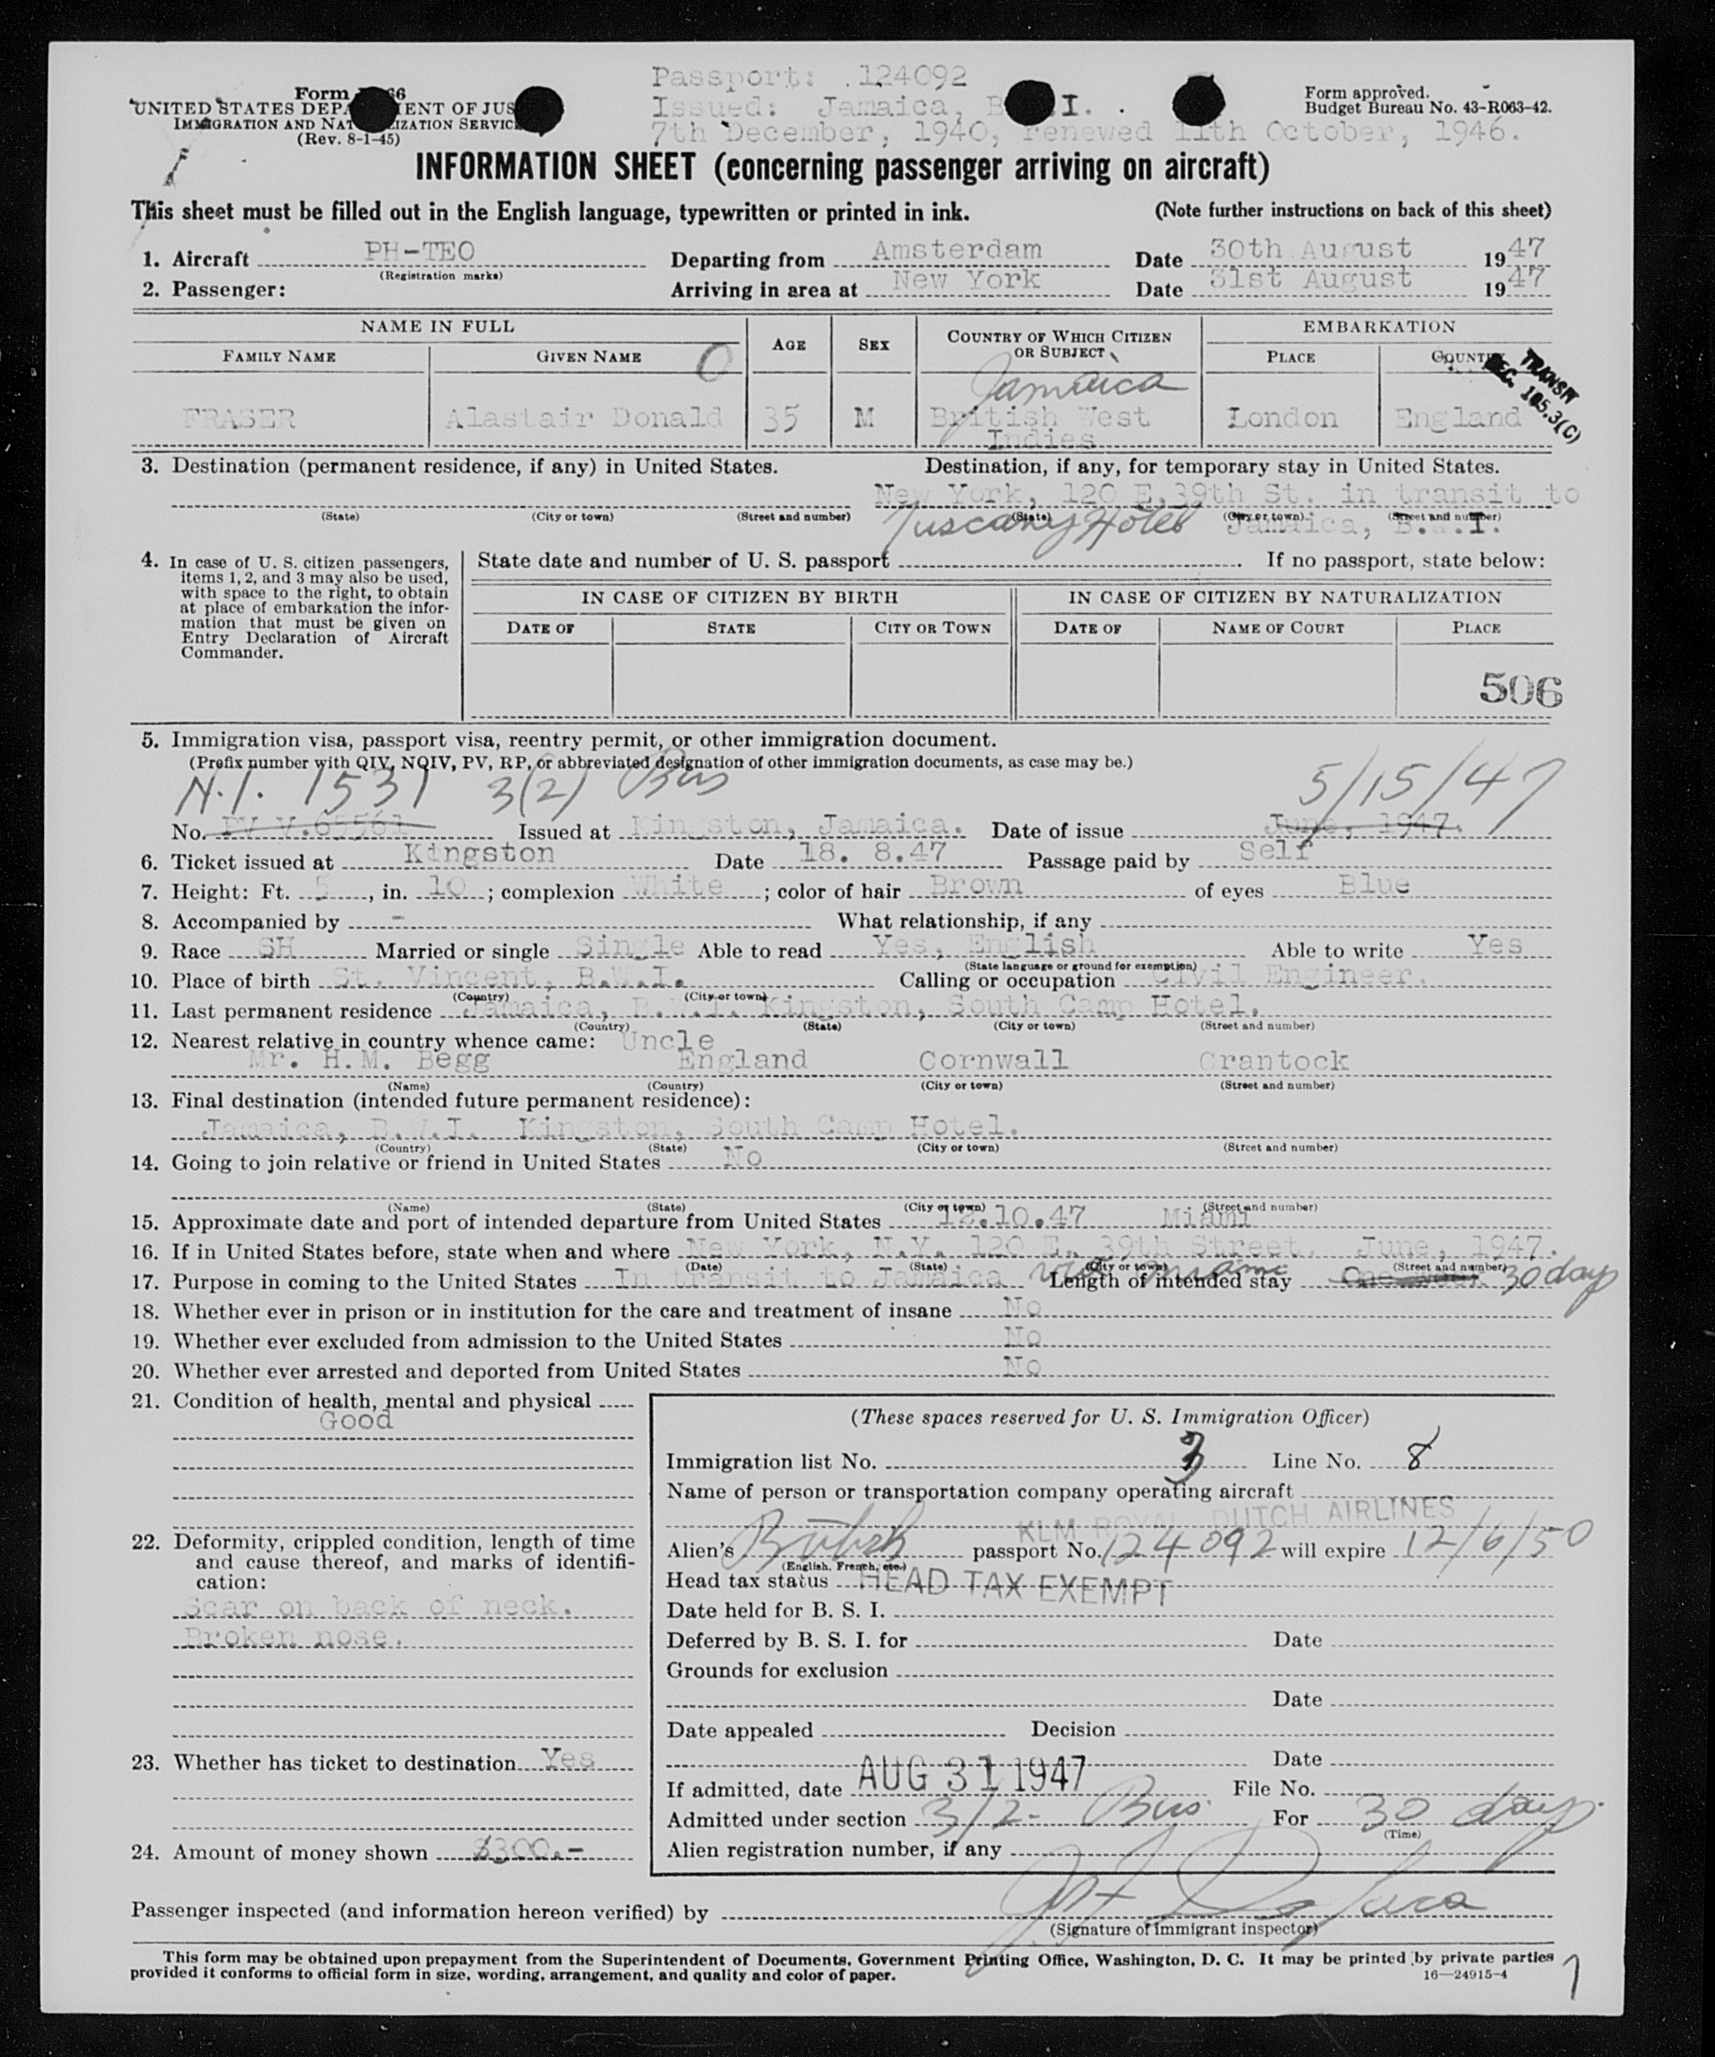 Passport: 124092
Issued: Jamaica, B I.
7th December, 1940, renewed 11th October, 1946.
Form 66
UNITED STATES DEPA IENT OF JUS
IMMIGRATION AND NAT IZATION SERVIC
(Rev. 8-1-45)
Form approved.
Budget Bureau No. 43-R063-42.
INFORMATION SHEET (concerning passenger arriving on aircraft)
This sheet must be filled out in the English language, typewritten or printed in ink. (Note further instructions on back of this sheet)
1. Aircraft PH-TEO Departing from Amsterdam Date 30th August 1947
(Registration marks)
2. Passenger: Arriving in area at New York Date 31st August 1947
NAME IN FULL AGE SEX COUNTRY OF WHICH CITIZEN OR SUBJECT EMBARKATION
FAMILY NAME GIVEN NAME PLACE COUNTRY
TRANSIT
SEC. 105.3(C)
Jamaica
FRASER Alastair Donald 35 M British West Indies London England
3. Destination (permanent residence, if any) in United States. Destination, if any, for temporary stay in United States.
New York, 120 E. 39th St. in transit to
(State) (City or town) (Street and number) (State) (City or town) (Street and number)
Tuscany Hotel Jamaica, B.W.I.
4. In case of U. S. citizen passengers, items 1, 2, and 3 may also be used, with space to the right, to obtain at place of embarkation the information that must be given on Entry Declaration of Aircraft Commander.
State date and number of U. S. passport . If no passport, state below:
IN CASE OF CITIZEN BY BIRTH IN CASE OF CITIZEN BY NATURALIZATION
DATE OF STATE CITY OR TOWN DATE OF NAME OF COURT PLACE
506
5. Immigration visa, passport visa, reentry permit, or other immigration document.
(Prefix number with QIV, NQIV, PV, RP, or abbreviated designation of other immigration documents, as case may be.)
N.I. 1531 3(2) Bus 5/15/47
No. PV V.65561 Issued at Kingston, Jamaica. Date of issue June, 1947.
6. Ticket issued at Kingston Date 18. 8.47 Passage paid by Self
7. Height: Ft. 5, in. 10; complexion White; color of hair Brown of eyes Blue
8. Accompanied by - What relationship, if any
9. Race SH Married or single Single Able to read Yes, English Able to write Yes
(State language or ground for exemption)
10. Place of birth St. Vincent, B.W.I. Calling or occupation Civil Engineer.
(Country) (City or town)
11. Last permanent residence Jamaica, B.W.I. Kingston, South Camp Hotel.
(Country) (State) (City or town) (Street and number)
12. Nearest relative in country whence came: Uncle
Mr. H.M. Begg England Cornwall Crantock
(Name) (Country) (City or town) (Street and number)
13. Final destination (intended future permanent residence):
Jamaica, B.W.I. Kingston, South Camp Hotel.
(Country) (State) (City or town) (Street and number)
14. Going to join relative or friend in United States No
(Name) (State) (City or town) (Street and number)
15. Approximate date and port of intended departure from United States 12.10.47 Miami
16. If in United States before, state when and where New York, N.Y. 120 E. 39th Street. June, 1947.
(Date) (State) (City or town) (Street and number)
17. Purpose in coming to the United States In transit to Jamaica via Miami Length of intended stay 30 days
18. Whether ever in prison or in institution for the care and treatment of insane No
19. Whether ever excluded from admission to the United States No
20. Whether ever arrested and deported from United States No
21. Condition of health, mental and physical
Good
22. Deformity, crippled condition, length of time and cause thereof, and marks of identification:
Scar on back of neck.
Broken nose.
23. Whether has ticket to destination Yes
24. Amount of money shown $300.-
(These spaces reserved for U. S. Immigration Officer)
Immigration list No. 3 Line No. 8
Name of person or transportation company operating aircraft
KLM ROYAL DUTCH AIRLINES
Alien's British passport No. 124092 will expire 12/6/50
(English, French, etc.)
Head tax status HEAD TAX EXEMPT
Date held for B. S. I.
Deferred by B. S. I. for Date
Grounds for exclusion
Date
Date appealed Decision
Date
If admitted, date AUG 31 1947 File No.
Admitted under section 3/2- Bus. For 30 days.
(Time)
Alien registration number, if any
Passenger inspected (and information hereon verified) by
(Signature of immigrant inspector)
This form may be obtained upon prepayment from the Superintendent of Documents, Government Printing Office, Washington, D. C. It may be printed by private parties
provided it conforms to official form in size, wording, arrangement, and quality and color of paper.
16—24915-4